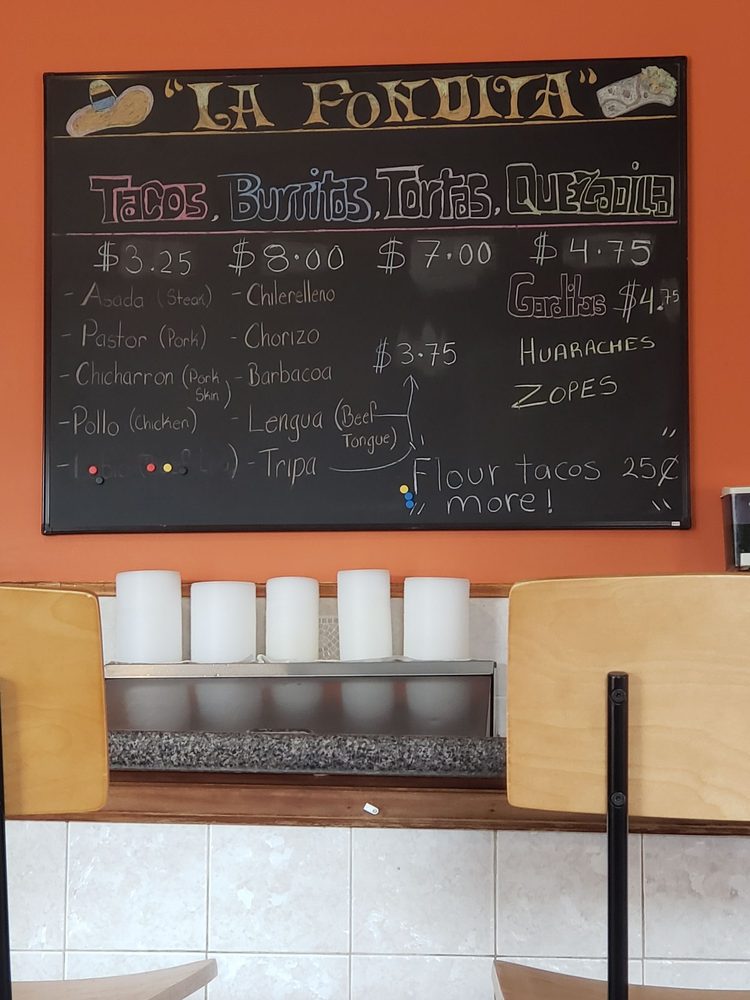 "LA FONDITA"
Tacos, Burritos, Tortas, QUEZadilla
$3.25 $8.00 $7.00 $4.75
- Asada (Steak) - Chilerelleno
Gorditas $4.75
- Pastor (Pork) - Chorizo
$3.75
HUARACHES
- Chicharron (Pork Skin) - Barbacoa
ZOPES
- Pollo (chicken) - Lengua (Beef Tongue)
- Tripa
"Flour tacos 25¢
more!"